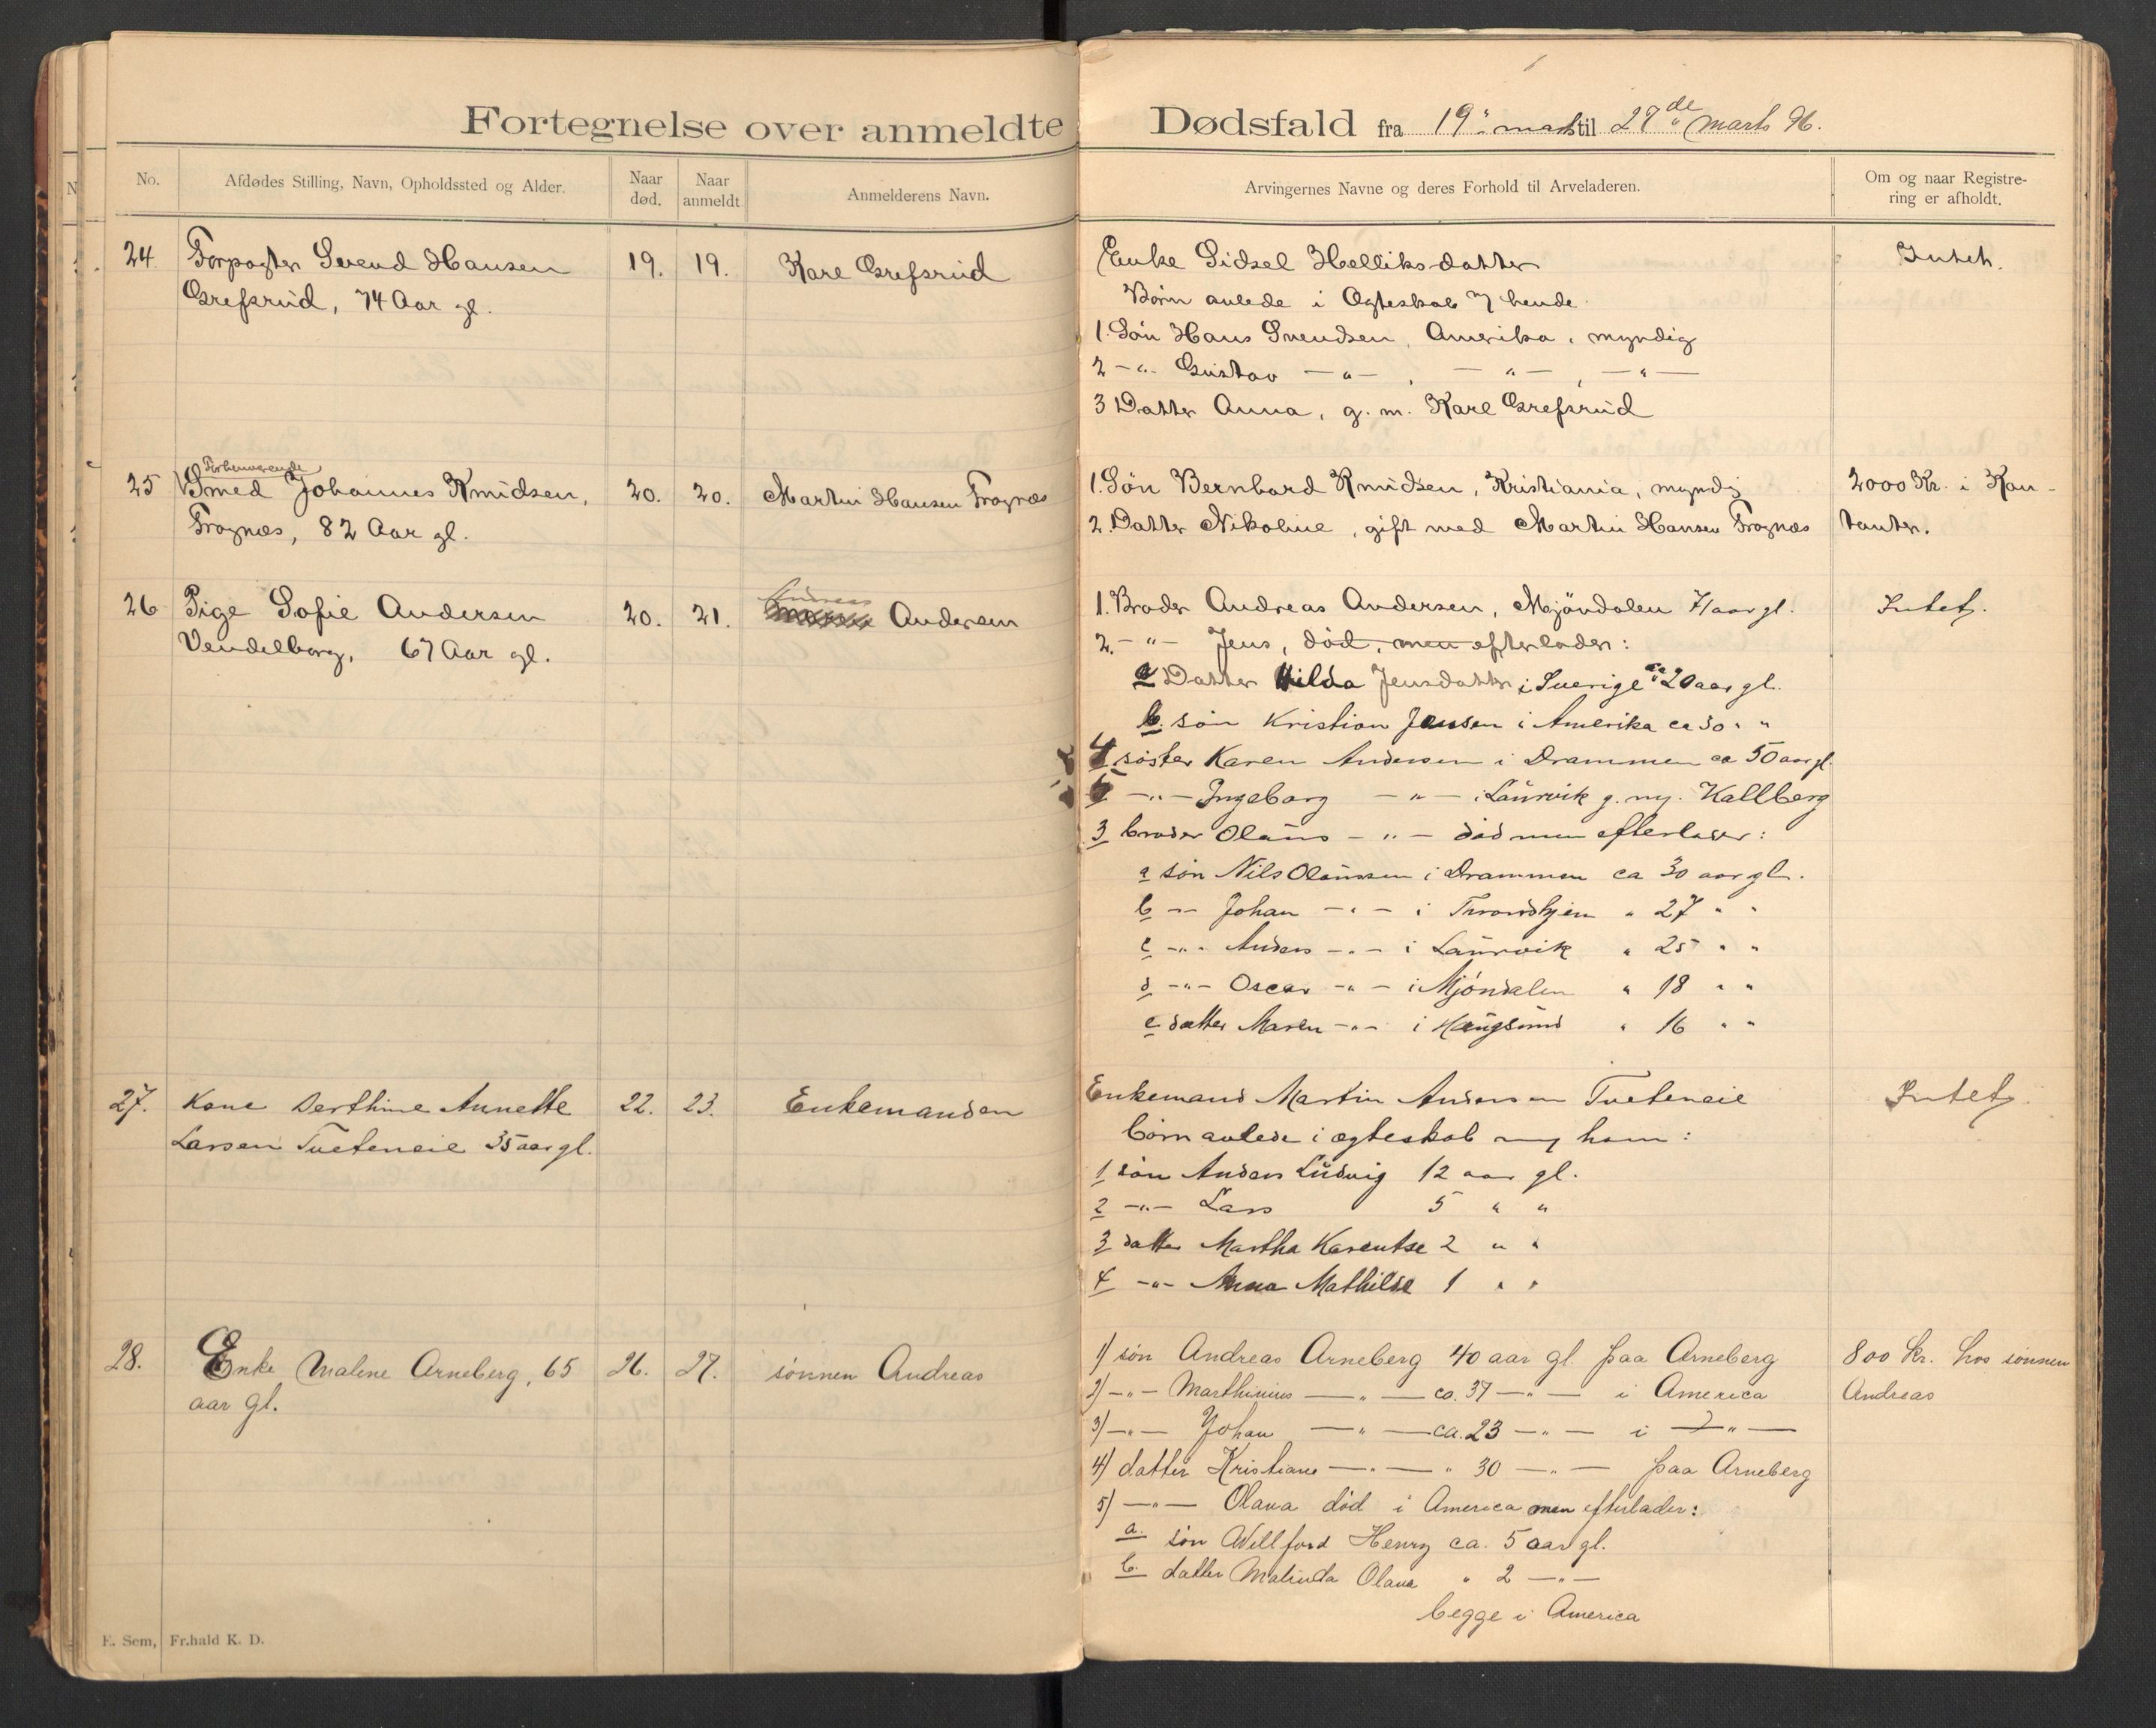 Fortegnelse over anmeldte Dødsfald fra 19 marts til 27de Marts 96.
No. Afdødes Stilling, Navn, Opholdssted og Alder. Naar død. Naar anmeldt Anmelderens Navn. Arvingernes Navne og deres Forhold til Arveladeren. Om og naar Registrering er afholdt.
24. Forpagter Svend Hansen 19. 19. Karl Grefsrud
Grefsrud, 74 Aar gl.
Enke Sidsel Helliksdatter Intet.
Børn avlede i Ægteskab m/ hende.
1. Søn Hans Svendsen, Amerika, myndig
2 —"— Gustav —"—, —"—, —"—
3 Datter Anna, g. m. Karl Grefsrud
25 Forhenværende
Smed Johannes Knudsen, 20. 20. Martin Hansen Frognæs
Frognæs, 82 Aar gl.
1. Søn Bernhard Knudsen, Kristiania, myndig 2000 Kr. i Kon-
2. Datter Nikoline, gift med Martin Hansen Frognæs tanter.
26 Pige Sofie Andersen 20. 21. Andreas Andersen
Vendelborg, 67 Aar gl.
1. Broder Andreas Andersen, Mjöndalen 71 aar gl. Intet.
2. —"— Jens, död, men efterlader:
a Datter Hilda Jensdatter i Sverige ca 20 aar gl.
b. sön Kristian Jensen i Amerika ca 30 " "
4 söster Karen Andersen i Drammen ca 50 aar gl.
5 —"— Ingeborg —"— i Laurvik g. m. Kallberg
3 broder Olaus —"— död men efterlader:
a sön Nils Olaussen i Drammen ca 30 aar gl.
b —"— Johan —"— i Throndhjem " 27 " "
c —"— Anders —"— i Laurvik " 25 " "
d —"— Oscar —"— i Mjöndalen " 18 " "
e datter Maren —"— i Haugsund " 16 " "
27. Kone Berthine Annette 22. 23. Enkemanden
Larsen Tveteneie 35 aar gl.
Enkemand Martin Andersen Tveteneie Intet.
börn avlede i ægteskab m/ ham:
1 sön Anders Ludvig 12 aar gl.
2 —"— Lars 5 " "
3 datter Martha Karentse 2 " "
4 —"— Anna Mathilde 1 " "
28. Enke Malene Arneberg, 65 26. 27. sönnen Andreas
aar gl.
1) sön Andreas Arneberg 40 aar gl. paa Arneberg 800 kr. hos sönnen
2) —"— Marthinius —"— ca. 37 —"— i America Andreas
3) —"— Johan —"— ca. 23 —"— i —"—
4) datter Kristiane —"— " 30 —"— paa Arneberg
5) —"— Olava död i America men efterlader:
a. sön Willford Henry ca. 5 aar gl.
b. datter Malinda Olava " 2 —"—
begge i America
E. Sem, Fr.hald K. D.